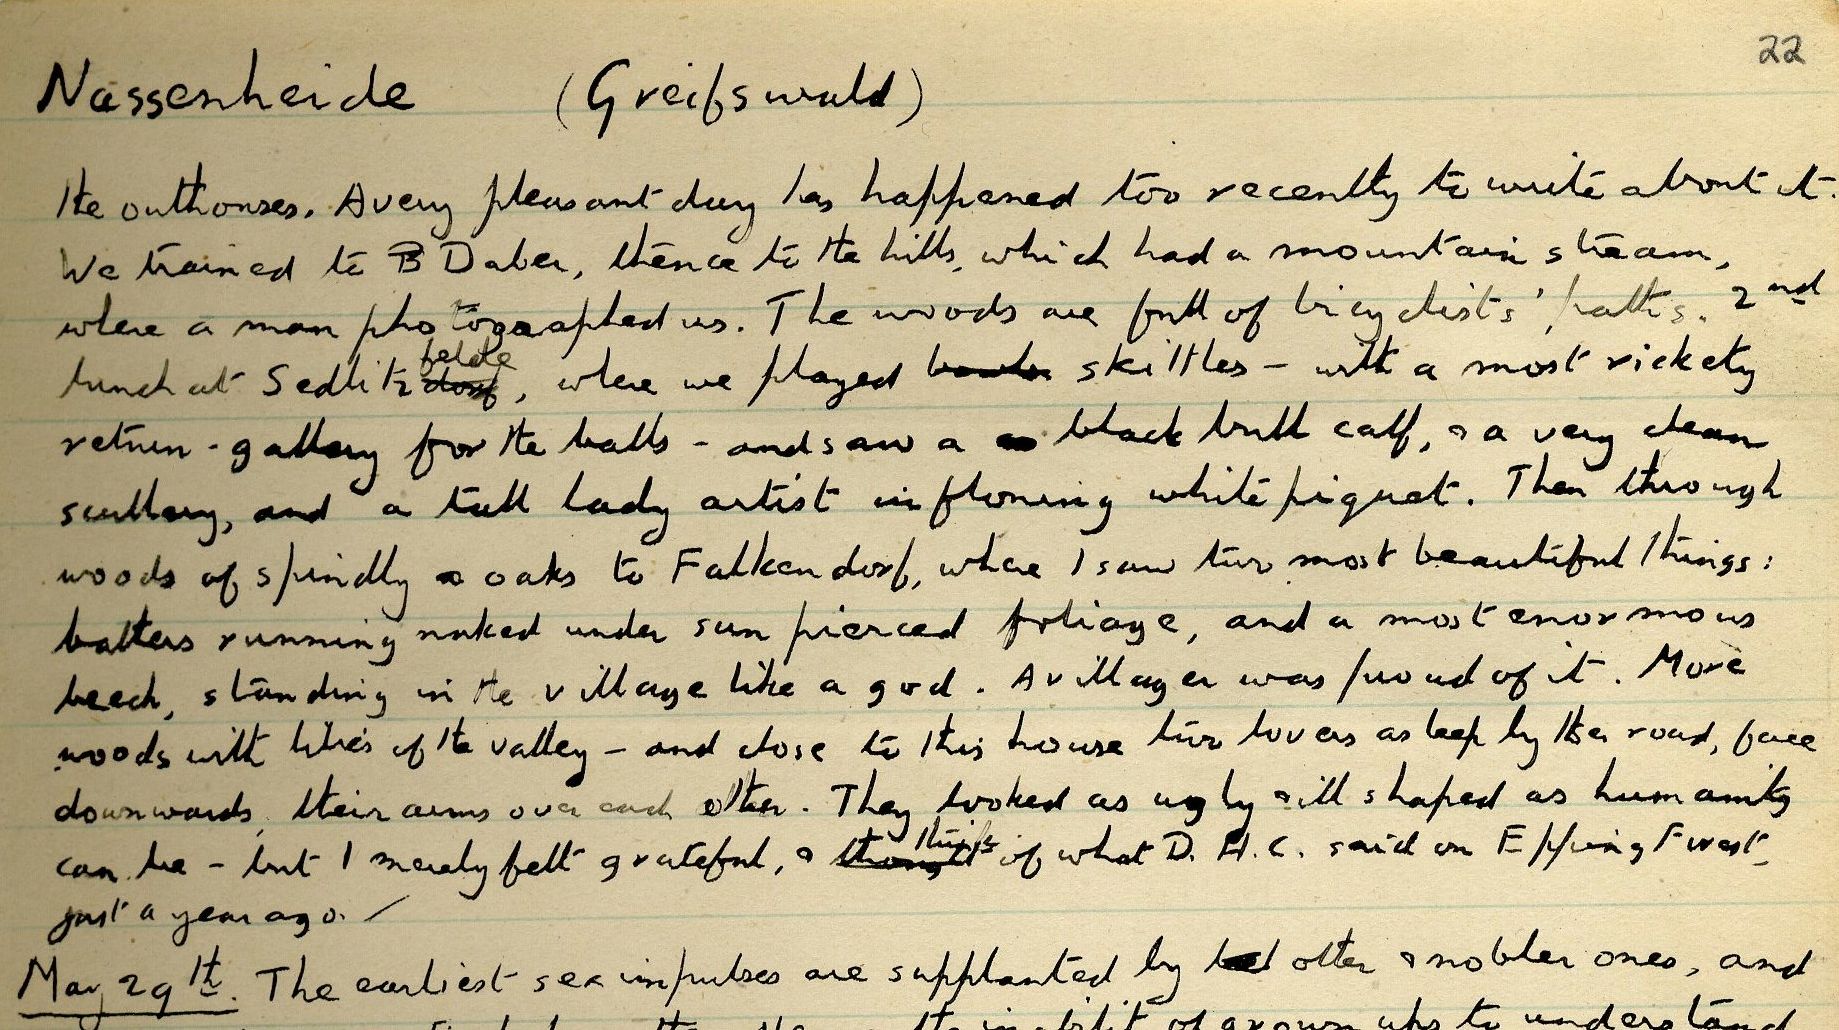 22
Nassenheide (Greifswald)
the outhouses. A very pleasant day has happened too recently to write about it.
We trained to B Daber, thence to the hills, which had a mountain stream,
where a man photographed us. The woods are full of bicyclists' paths. 2nd
lunch at Sedlitz dorf felde, where we played bowls skittles – with a most rickety
return-gallery for the balls – and saw a black bull calf, & a very clean
scullery, and a tall lady artist in flowing white piquet. Then through
woods of spindly oaks to Falkendorf, where I saw two most beautiful things:
bathers running naked under sun pierced foliage, and a most enormous
beech, standing in the village like a god. A villager was proud of it. More
woods with lilies of the valley – and close to this house two lovers asleep by the road, face
downwards, their arms over each other. They looked as ugly & ill shaped as humanity
can be – but I merely felt grateful, & thought think of what D. H. C. said on Epping Forest
just a year ago. /
May 29th. The earliest sex impulses are supplanted by other & nobler ones, and
the inability of grown ups to understand